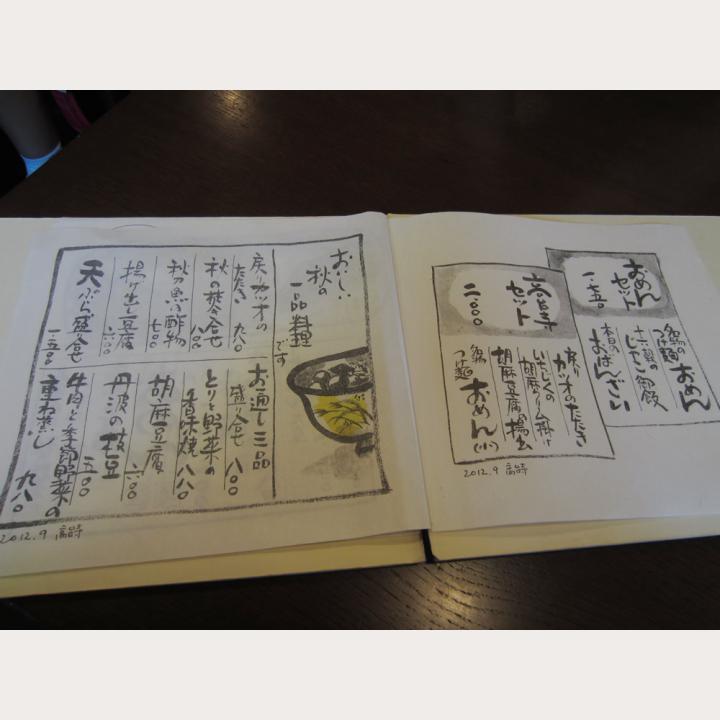 おめん
セット
一、一五〇
名物の
つけ麺おめん
十六穀の
じゃこ御飯
本日の
おばんざい
高台寺
セット
二、一〇〇
戻りカツオのたたき
いちじくの
胡麻クリーム掛け
胡麻豆腐の揚出
名物
つけ麺おめん(小)
2012.9 高台寺
おいしい
秋の
一品料理
です
戻りカツオの
たたき 九八〇
秋の焚合せ
八〇〇
秋刀魚の酢物
七〇〇
揚げ生し豆腐
六〇〇
天ぷら盛り合せ
一、一五〇〇
お通し三品
盛り合せ 八〇〇
とりと野菜の
香味焼 八八〇
胡麻豆腐
六〇〇
丹波の枝豆
五〇〇
牛肉と季節野菜の
重ね蒸し 九八〇
2012.9 高台寺